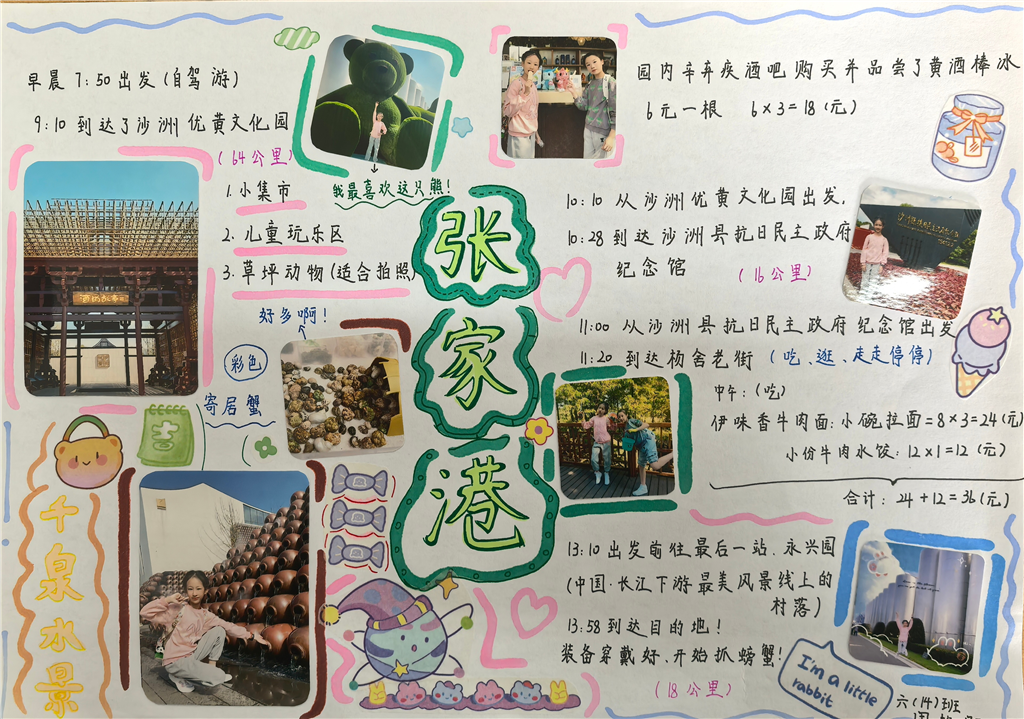 早晨 7:50 出发 (自驾游)
9:10 到达了沙洲优黄文化园
(64公里)
1. 小集市
2. 儿童玩乐区
3. 草坪动物 (适合拍照)
我最喜欢这只熊!
好多啊!
彩色
寄居蟹
千泉水景
张家港
园内辛弃疾酒吧购买并品尝了黄酒棒冰
6元一根 6×3=18 (元)
10:10 从沙洲优黄文化园出发,
10:28 到达沙洲县抗日民主政府
纪念馆
(16公里)
11:00 从沙洲县抗日民主政府纪念馆出发
11:20 到达杨舍老街 (吃、逛、走走停停)
中午: (吃)
伊味香牛肉面: 小碗拉面=8×3=24(元)
小份牛肉水饺: 12×1=12 (元)
合计: 24+12=36(元)
13:10 出发前往最后一站、永兴园
(中国·长江下游最美风景线上的
村落)
13:58 到达目的地!
装备穿戴好、开始抓螃蟹!
(18公里)
I'm a little
rabbit
六(14)班